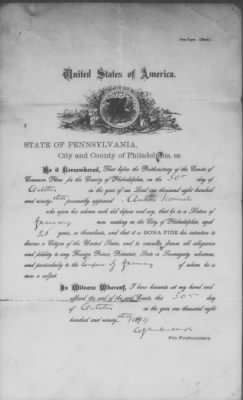 United States of America.
STATE OF PENNSYLVANIA,
City and County of Philadelphia, ss.
Be it Remembered, That before the Prothonotary of the Courts of
Common Pleas for the County of Philadelphia, on the 30th day of
October in the year of our Lord one thousand eight hundred
and ninety personally appeared Anton
who upon his solemn oath did depose and say, that he is a Native of
Germany now residing in the City of Philadelphia, aged
years, or thereabouts, and that it is BONA FIDE his intention to
become a Citizen of the United States, and to renounce forever all allegiance
and fidelity to any Foreign Prince, Potentate, State or Sovereignty whatever,
and particularly to the Emperor of Germany of whom he is
now a subject.
In Witness Whereof, I have hereunto set my hand and
affixed the seal of the said Courts, this 30th day
of October in the year one thousand eight
hundred and ninety
Pro Prothonotary.